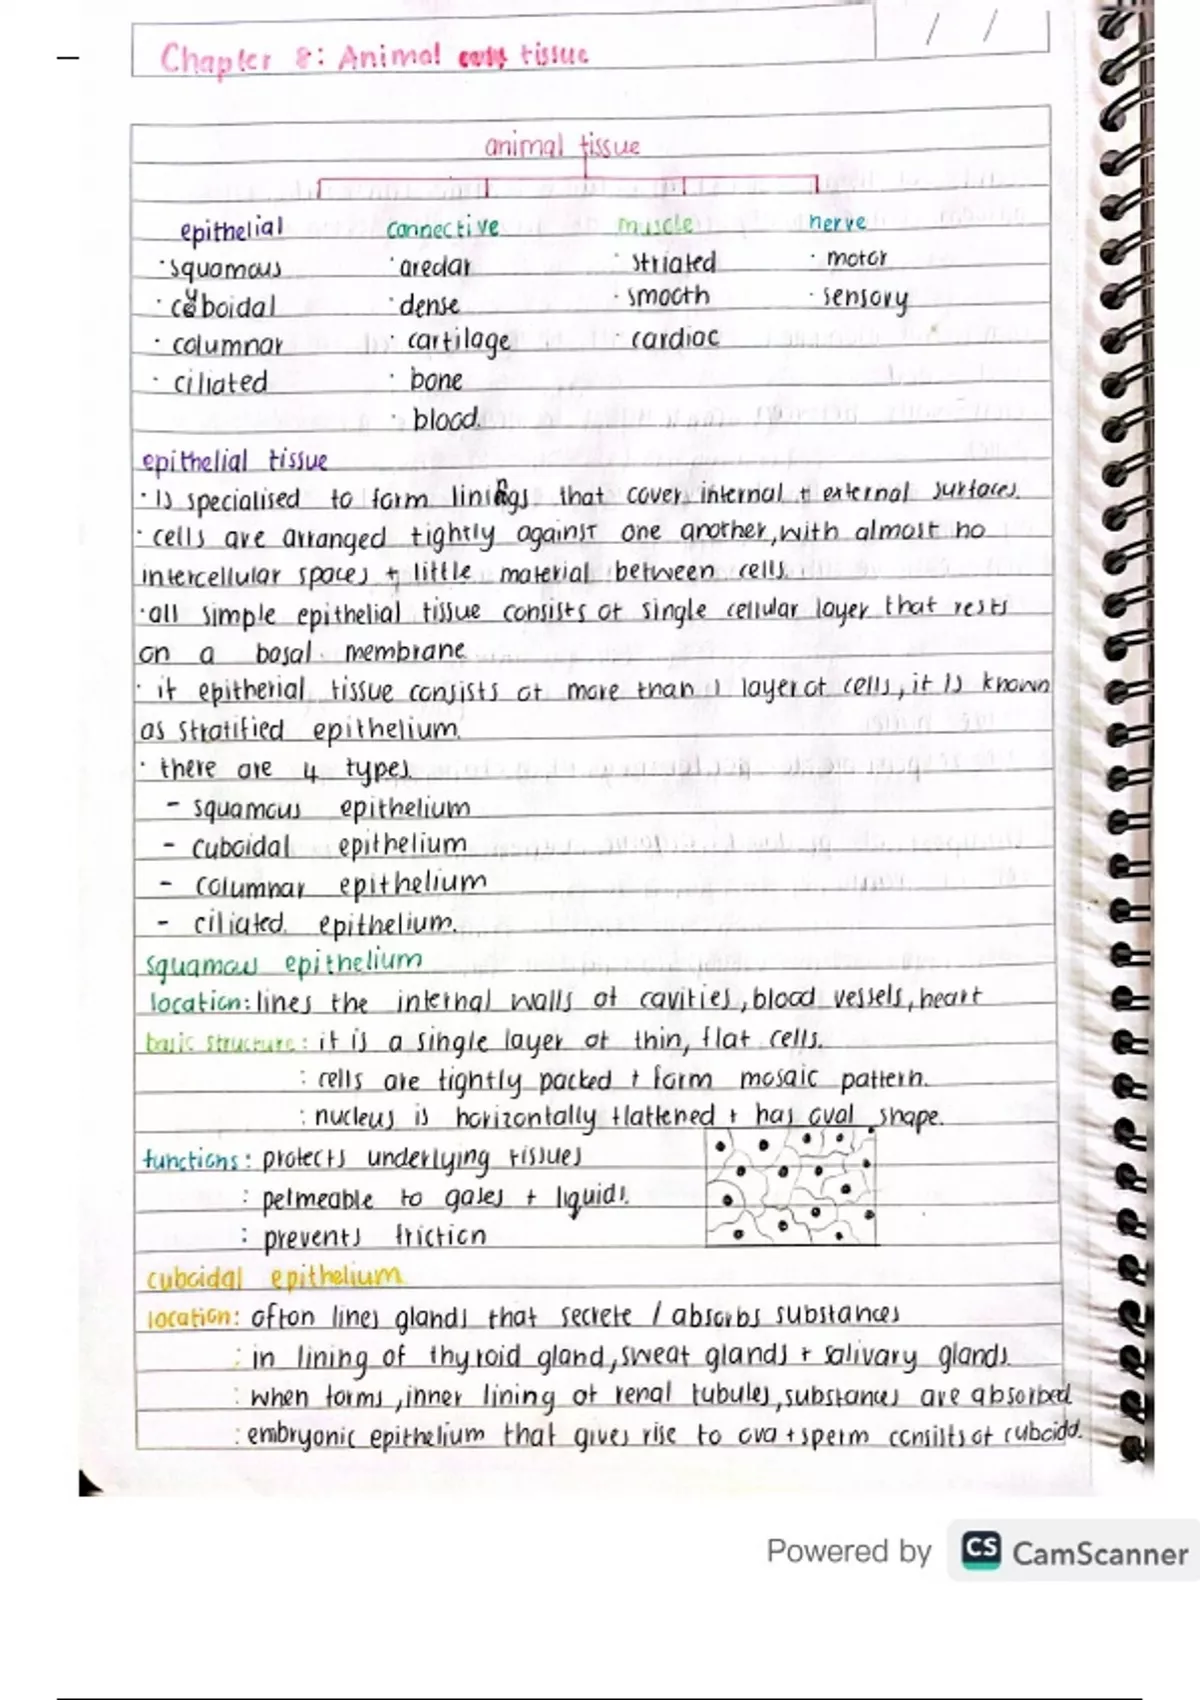 Chapter 8: Animal tissue
/ /
animal tissue
epithelial connective muscle nerve
· squamous · areolar · striated · motor
· cuboidal · dense · smooth · sensory
· columnar · cartilage · cardiac
· ciliated · bone
· blood.
epithelial tissue
· is specialised to form linings that cover internal + external surfaces.
· cells are arranged tightly against one another, with almost no
intercellular spaces + little material between cells.
· all simple epithelial tissue consists of single cellular layer that rests
on a basal membrane.
· if epitherial tissue consists of more than 1 layer of cells, it is known
as stratified epithelium.
· there are 4 types.
- squamous epithelium
- cuboidal epithelium
- columnar epithelium
- ciliated epithelium.
squamous epithelium
location: lines the internal walls of cavities, blood vessels, heart
basic structure: it is a single layer of thin, flat cells.
: cells are tightly packed + form mosaic pattern.
: nucleus is horizontally flattened + has oval shape.
functions: protects underlying tissues
: pelmeable to gases + liquids.
: prevents friction
cuboidal epithelium
location: ofton lines glands that secrete / absorbs substances
: in lining of thyroid gland, sweat glands + salivary glands.
: when forms, inner lining of renal tubules, substances are absorbed
: embryonic epithelium that gives rise to ova + sperm consists of cuboidal.
Powered by CS CamScanner